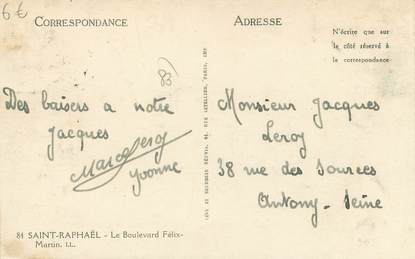 6€
CORRESPONDANCE
ADRESSE
N'écrire que sur
le côté réservé à
la correspondance
83
Des baisers a notre
Jacques
Yvonne
Monsieur Jacques
Leroy
38 rue des Sources
Antony - Seine
84 SAINT-RAPHAËL - Le Boulevard Félix-
Martin. LL.